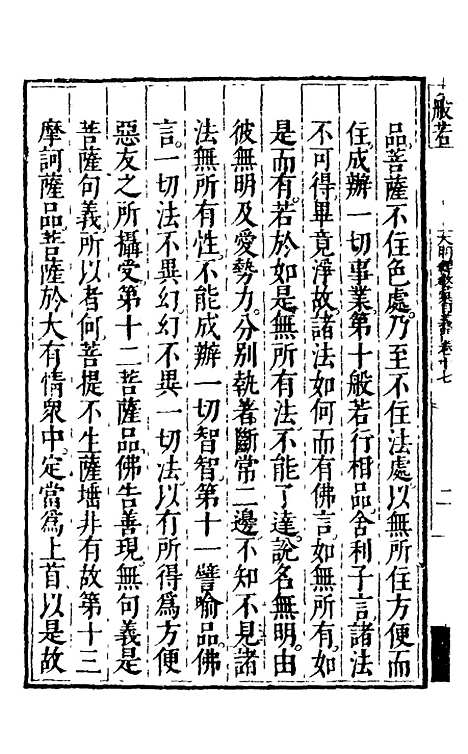 般若
大明釋教彙目義門卷十七
二
品菩薩不住色處乃至不住法處以無所住方便而
住成辦一切事業第十般若行相品舍利子言諸法
不可得畢竟淨故諸法如何而有佛言如無所有如
是而有若於如是無所有法不能了達說名無明由
彼無明及愛勢力分別執著斷常二邊不知不見諸
法無所有性不能成辦一切智智第十一譬喻品佛
言一切法不異幻幻不異一切法以有所得為方便
惡友之所攝受第十二菩薩品佛告善現無句義是
菩薩句義所以者何菩提不生薩埵非有故第十三
摩訶薩品菩薩於大有情衆中定當爲上首以是故